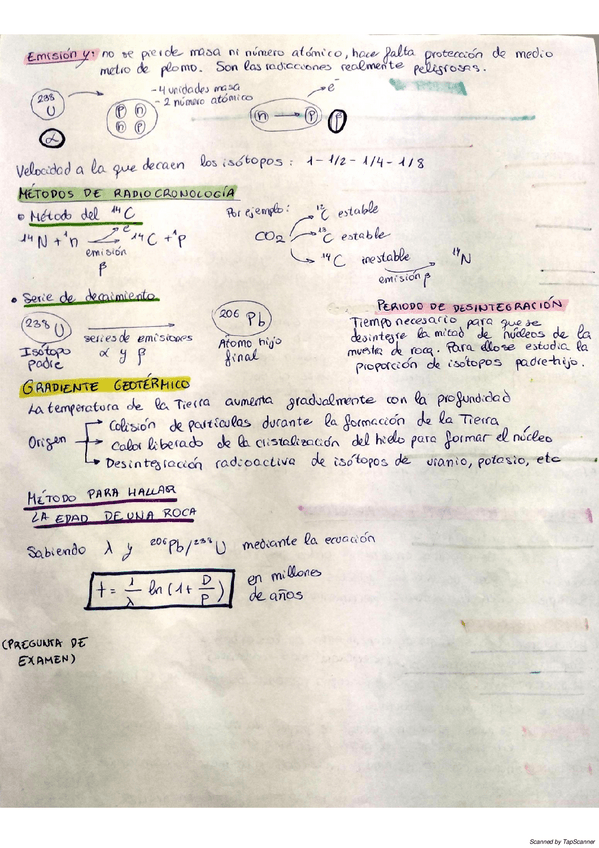 Emisión γ: no se pierde masa ni número atómico, hace falta protección de medio
metro de plomo. Son las radiaciones realmente peligrosas.
238 U
- 4 unidades masa
- 2 número atómico
p n
n p
α
e⁻
n → p
β
Velocidad a la que decaen los isótopos: 1 - 1/2 - 1/4 - 1/8
MÉTODOS DE RADIOCRONOLOGÍA
Método del ¹⁴C
¹⁴N + ¹n → ¹⁴C + ¹p
e⁻
emisión
β
Por ejemplo:
CO₂
¹²C estable
¹³C estable
¹⁴C inestable ¹⁴N
emisión β
• Serie de decaimiento
238 U
series de emisiones
α y β
206 Pb
Isótopo
padre
Átomo hijo
final
PERIODO DE DESINTEGRACIÓN
Tiempo necesario para que se
desintegre la mitad de núcleos de la
muestra de roca. Para ello se estudia la
proporción de isótopos padre-hijo.
GRADIENTE GEOTÉRMICO
La temperatura de la Tierra aumenta gradualmente con la profundidad
Origen
Colisión de partículas durante la formación de la Tierra
Calor liberado de la cristalización del hielo para formar el núcleo
Desintegración radioactiva de isótopos de uranio, potasio, etc
MÉTODO PARA HALLAR
LA EDAD DE UNA ROCA
Sabiendo λ y ²⁰⁶Pb/²³⁸U mediante la ecuación
t = 1/λ ln (1 + D/P)
en millones
de años
(PREGUNTA DE
EXAMEN)
Scanned by TapScanner